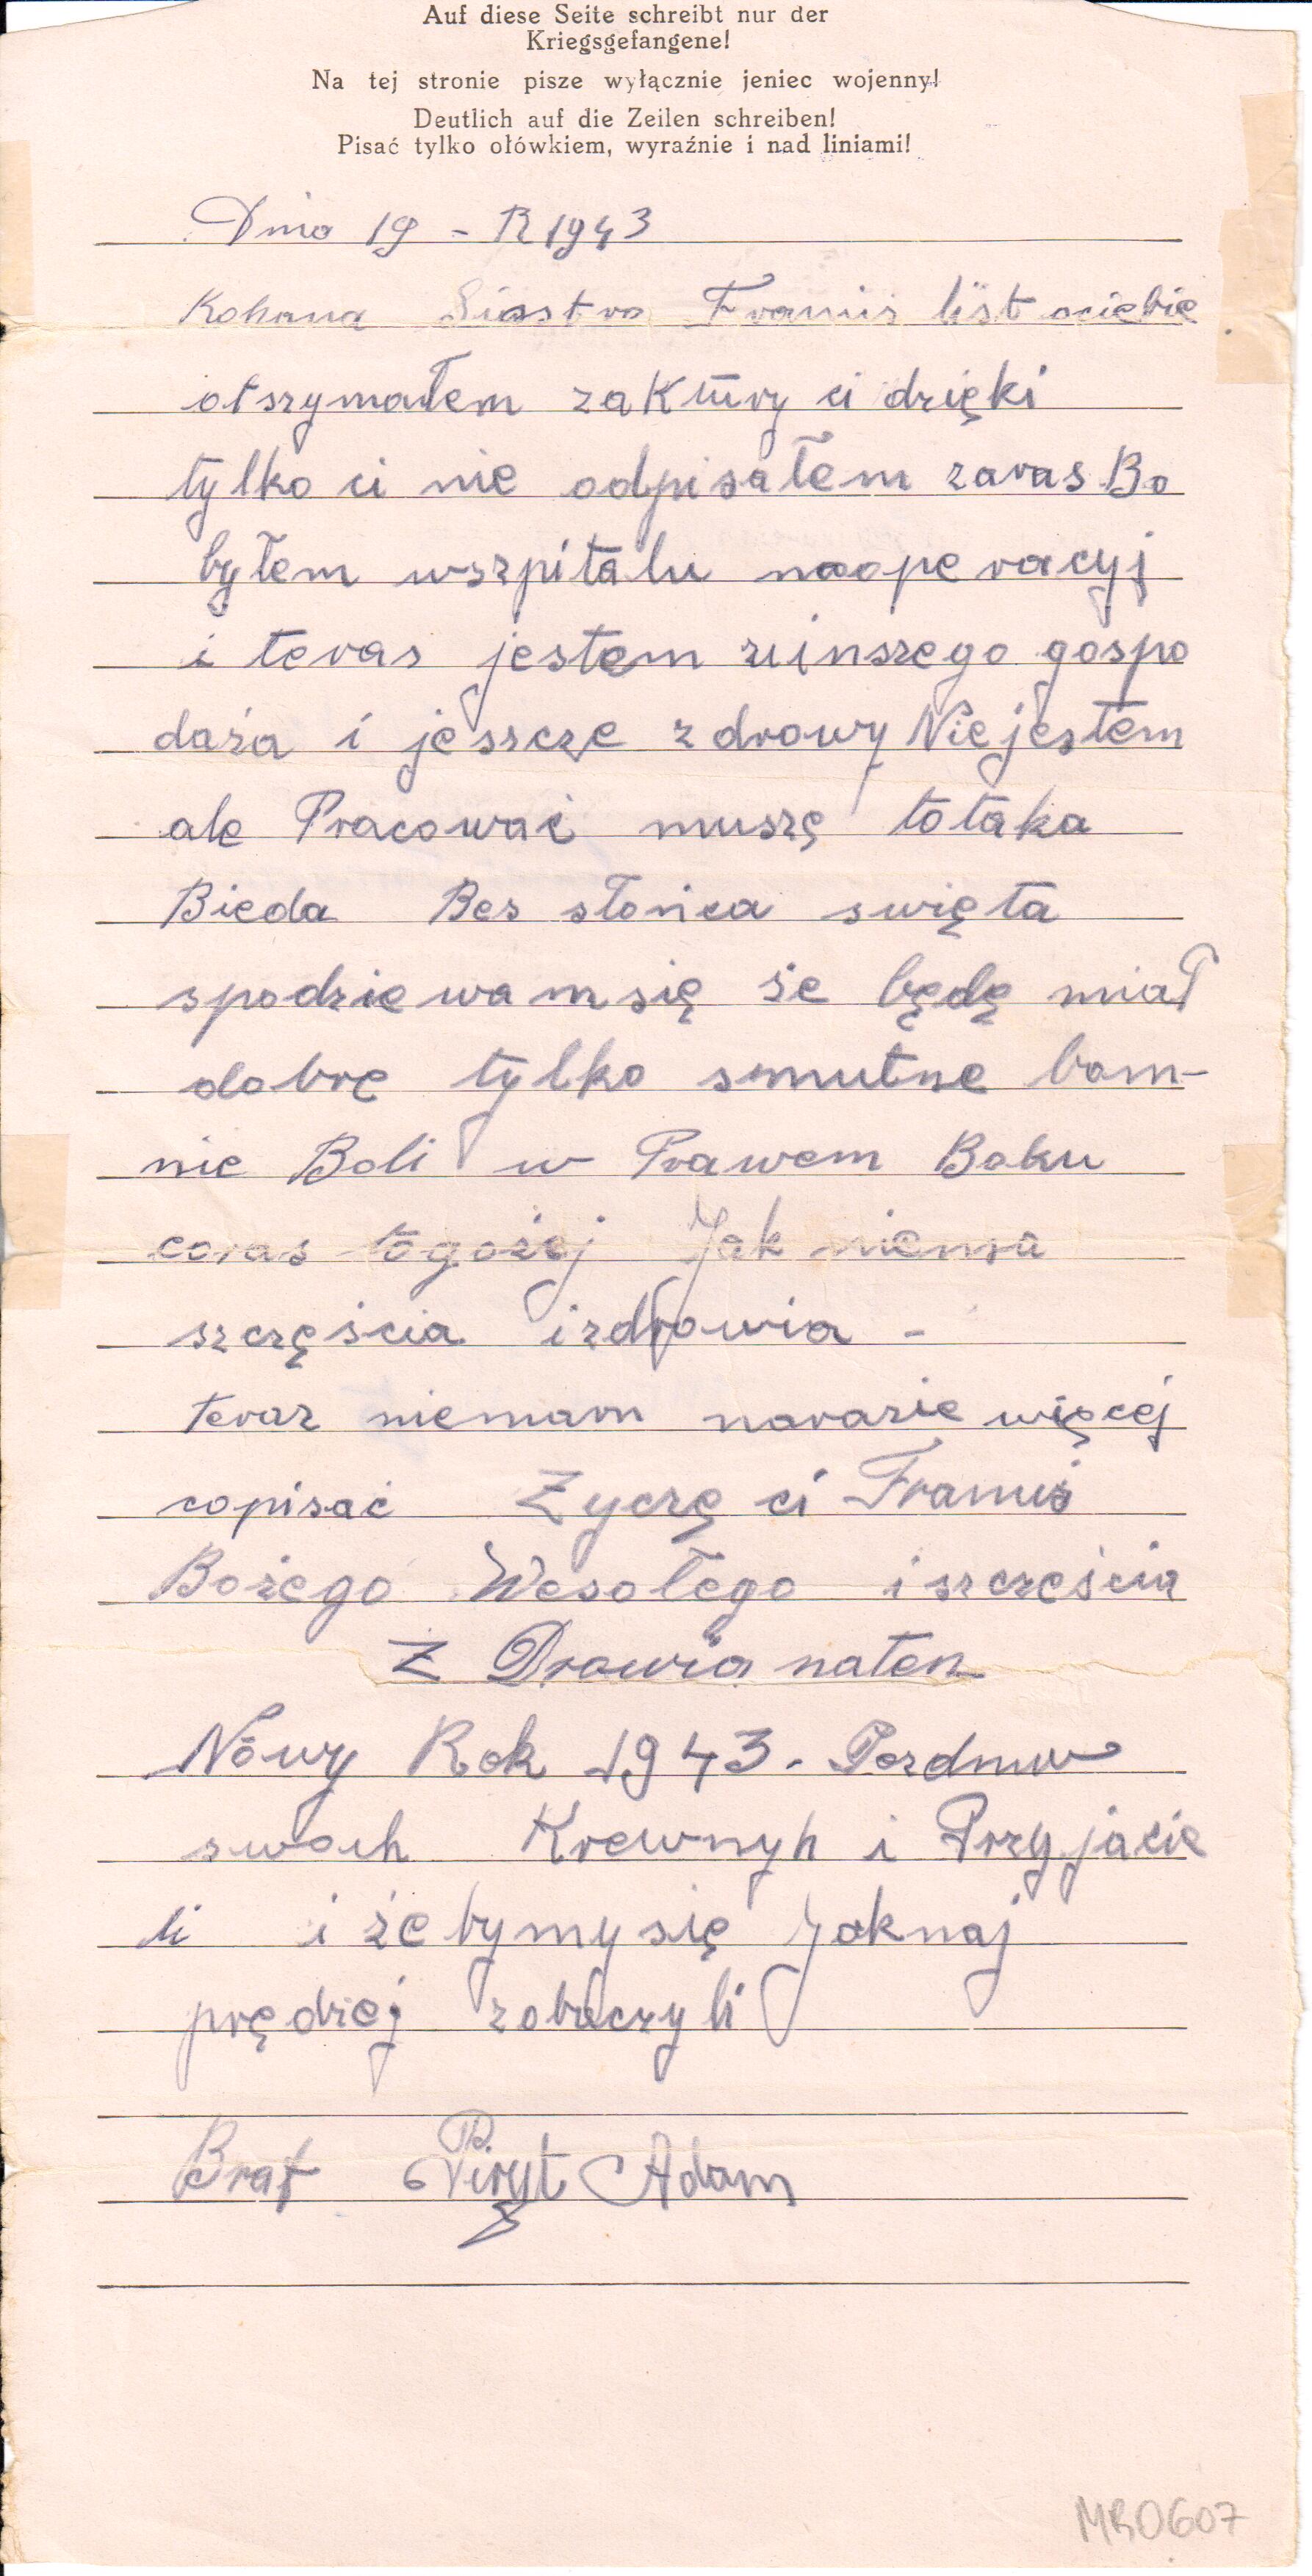 Auf diese Seite schreibt nur der
Kriegsgefangene!
Na tej stronie pisze wyłącznie jeniec wojenny!
Deutlich auf die Zeilen schreiben!
Pisać tylko ołówkiem, wyraźnie i nad liniami!
Dnia 19 - R 1943
Kohana Siostro Franuś list ociebie
otszymałem zaktury ci dzięki
tylko ci nie odpisałem zaras Bo
byłem wszpitalu naoperacyj
i teras jestem uinszego gospo
daża i jeszcze zdrowy Niejestem
ale Pracować muszę totaka
Bieda Bes słońca swięta
spodziewamsię że będę miał
dobre tylko smutne bom-
nie Boli w Prawem Boku
coras togożej Jak niema
szczęścia izdrowia -
teraz niemam narazie więcej
copisać Zyczę ci Franuś
Bożego Wesołego i szcześcia
Z Drowia naten
Nowy Rok 1943. Pozdruw
swoih Krewnyh i Przyjacie
li i żebymysię Jaknaj
prędzej zobaczyli
Brat Piryt Adam
MRO607